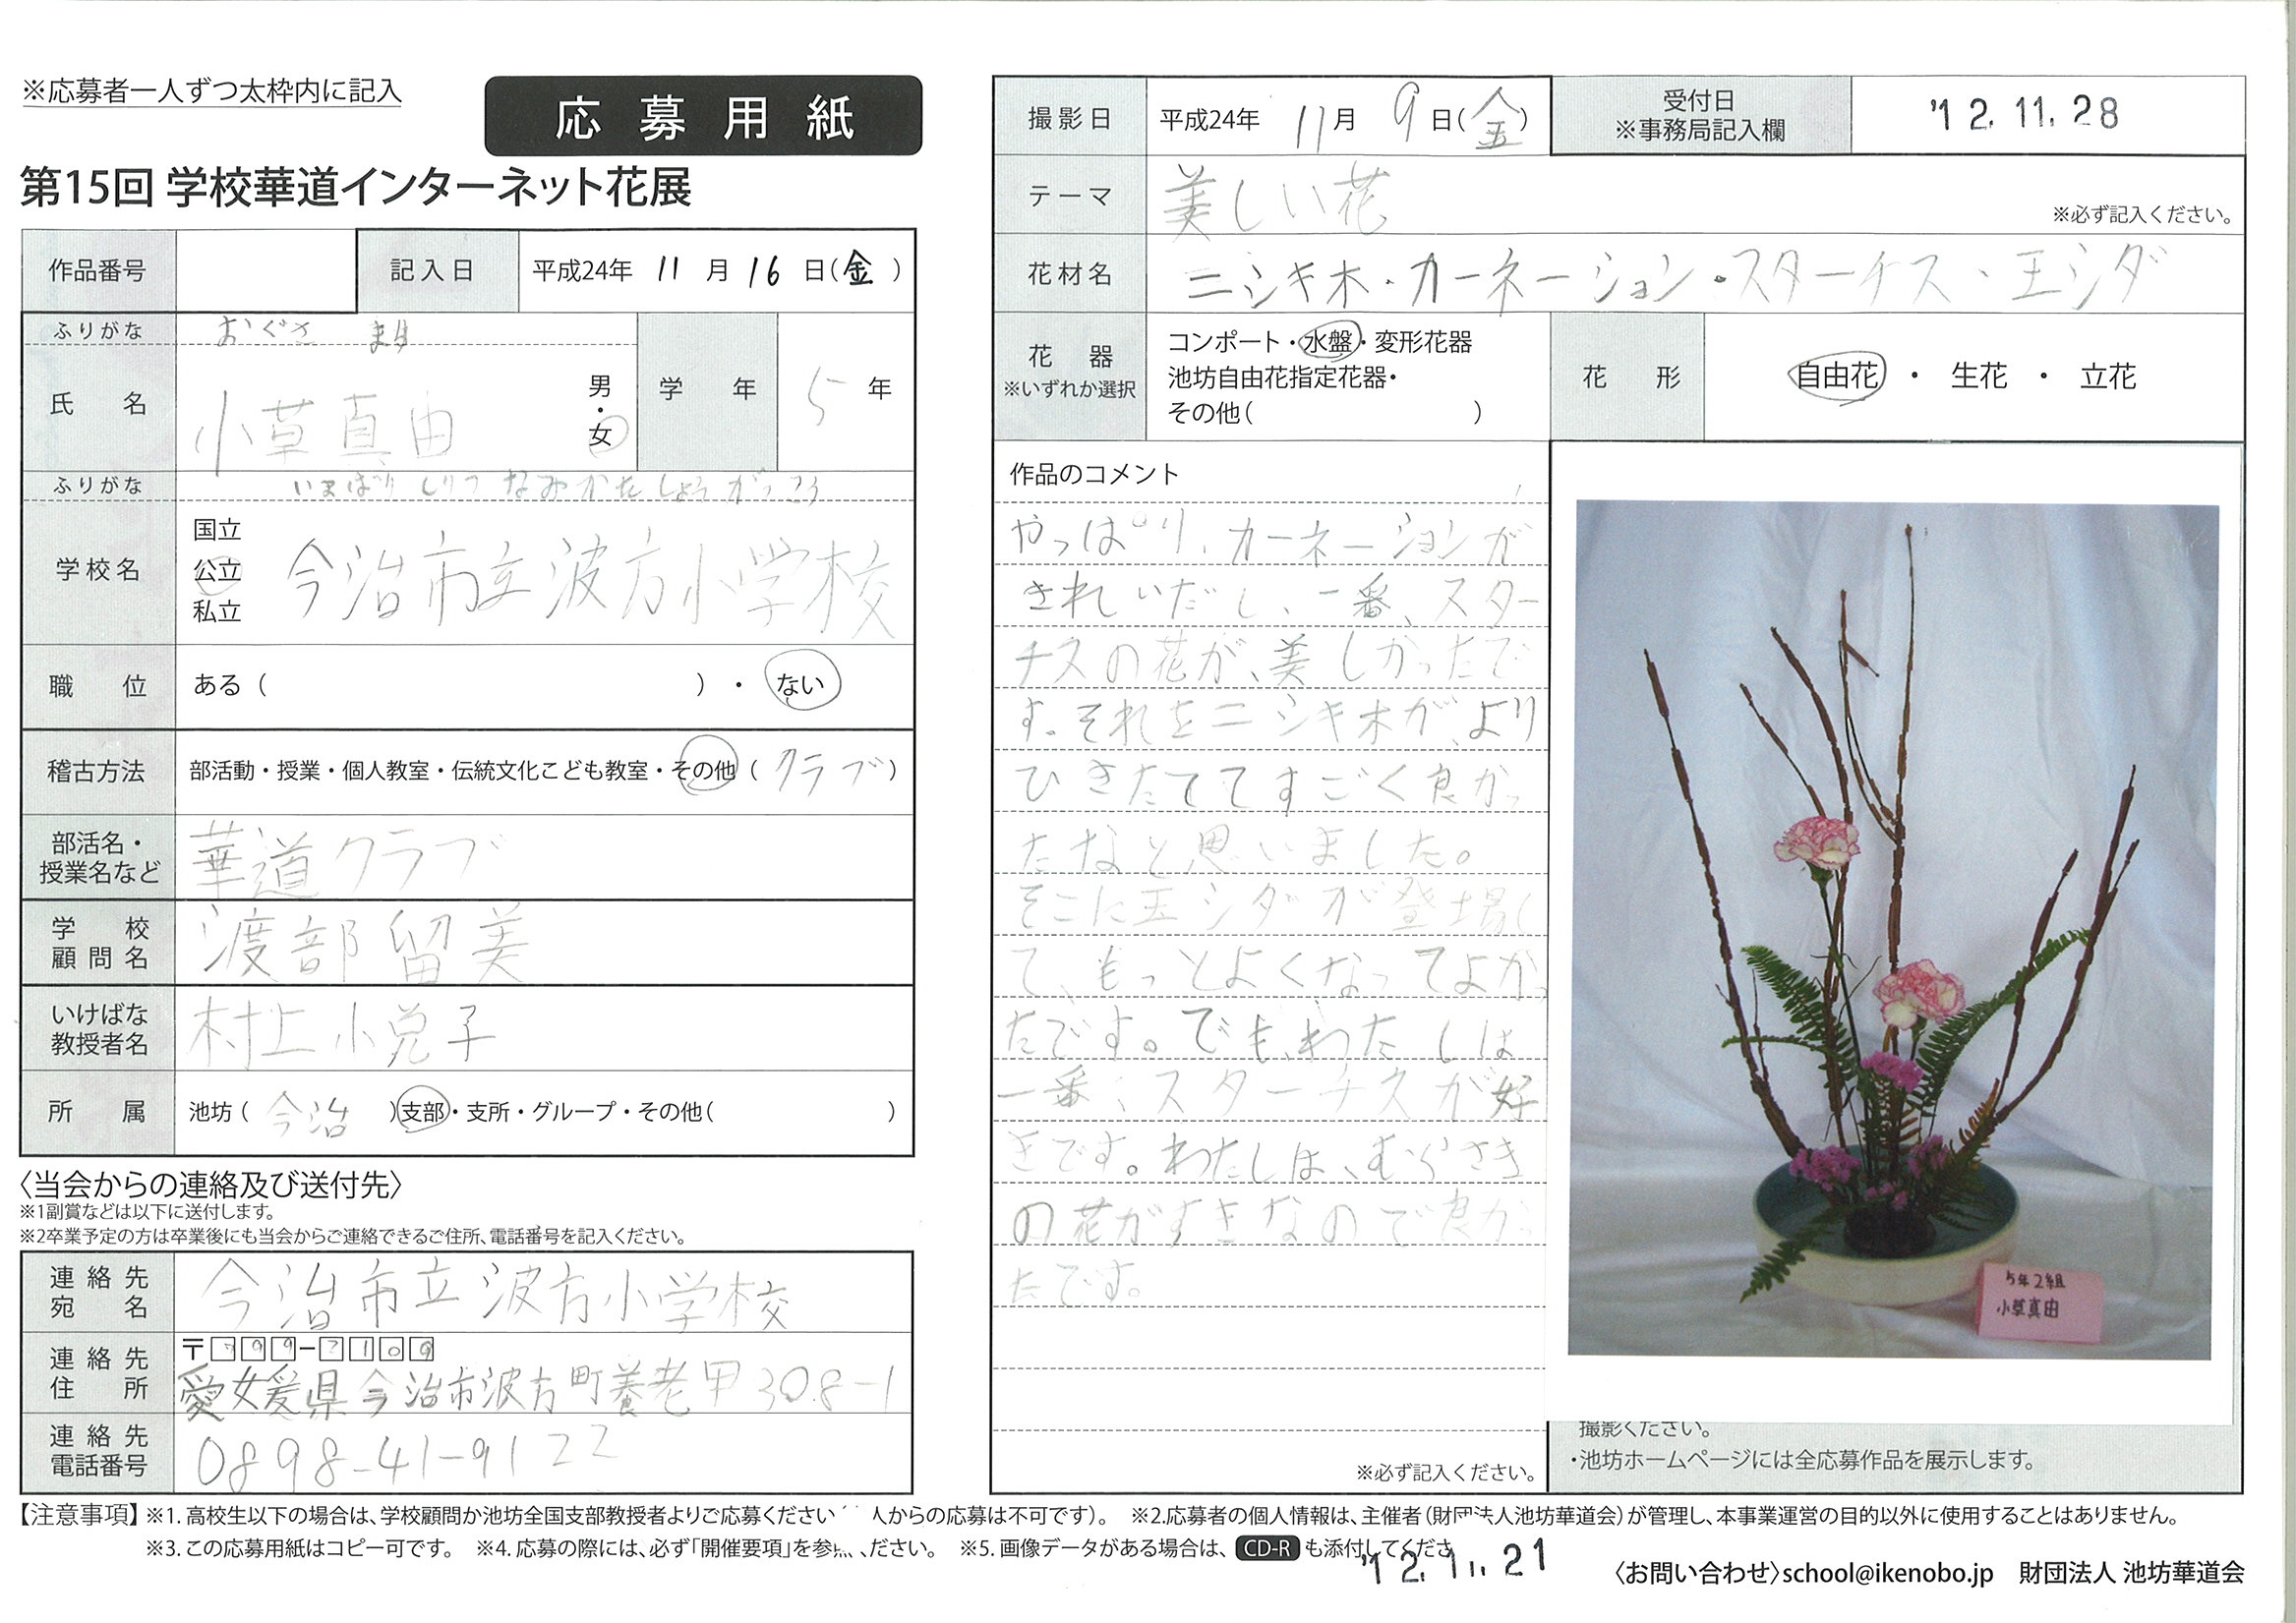 ※応募者一人ずつ太枠内に記入
応募用紙
第15回 学校華道インターネット花展
作品番号
記入日 平成24年 11月16日(金)
ふりがな おぐさ まゆ
氏名 小草真由 男・女
学年 5年
ふりがな いまばりしりつなみかたしょうがっこう
学校名 国立 公立 私立 今治市立波方小学校
職位 ある( )・ない
稽古方法 部活動・授業・個人教室・伝統文化こども教室・その他(クラブ)
部活名・授業名など 華道クラブ
学校顧問名 渡部留美
いけばな教授者名 村上小兒子
所属 池坊(今治)支部・支所・グループ・その他( )
〈当会からの連絡及び送付先〉
※1副賞などは以下に送付します。
※2卒業予定の方は卒業後にも当会からご連絡できるご住所、電話番号を記入ください。
連絡先宛名 今治市立波方小学校
連絡先住所 〒799-2109
愛媛県今治市波方町養老甲308-1
連絡先電話番号 0898-41-9122
撮影日 平成24年 11月9日(金)
受付日 ※事務局記入欄 '12.11.28
テーマ 美しい花
※必ず記入ください。
花材名 ニシキ木・カーネーション・スターチス・玉シダ
花器 ※いずれか選択
コンポート・水盤・変形花器
池坊自由花指定花器・
その他( )
花形 自由花・生花・立花
作品のコメント
やっぱり、カーネーションが
きれいだし、一番、スター
チスの花が、美しかったで
す。それをニシキ木が、より
ひきたててすごく良かっ
たなと思いました。
そこに玉シダが登場し
て、もっとよくなってよかっ
たです。でも、わたしは
一番、スターチスが好
きです。わたしは、むらさき
の花がすきなので良かっ
たです。
※必ず記入ください。
5年2組
小草真由
撮影ください。
・池坊ホームページには全応募作品を展示します。
【注意事項】※1.高校生以下の場合は、学校顧問か池坊全国支部教授者よりご応募ください 人からの応募は不可です)。 ※2.応募者の個人情報は、主催者(財団法人池坊華道会)が管理し、本事業運営の目的以外に使用することはありません。
※3.この応募用紙はコピー可です。 ※4.応募の際には、必ず「開催要項」を参 ください。 ※5.画像データがある場合は、CD-Rも添付してくださ
'12.11.21
〈お問い合わせ〉school@ikenobo.jp 財団法人 池坊華道会